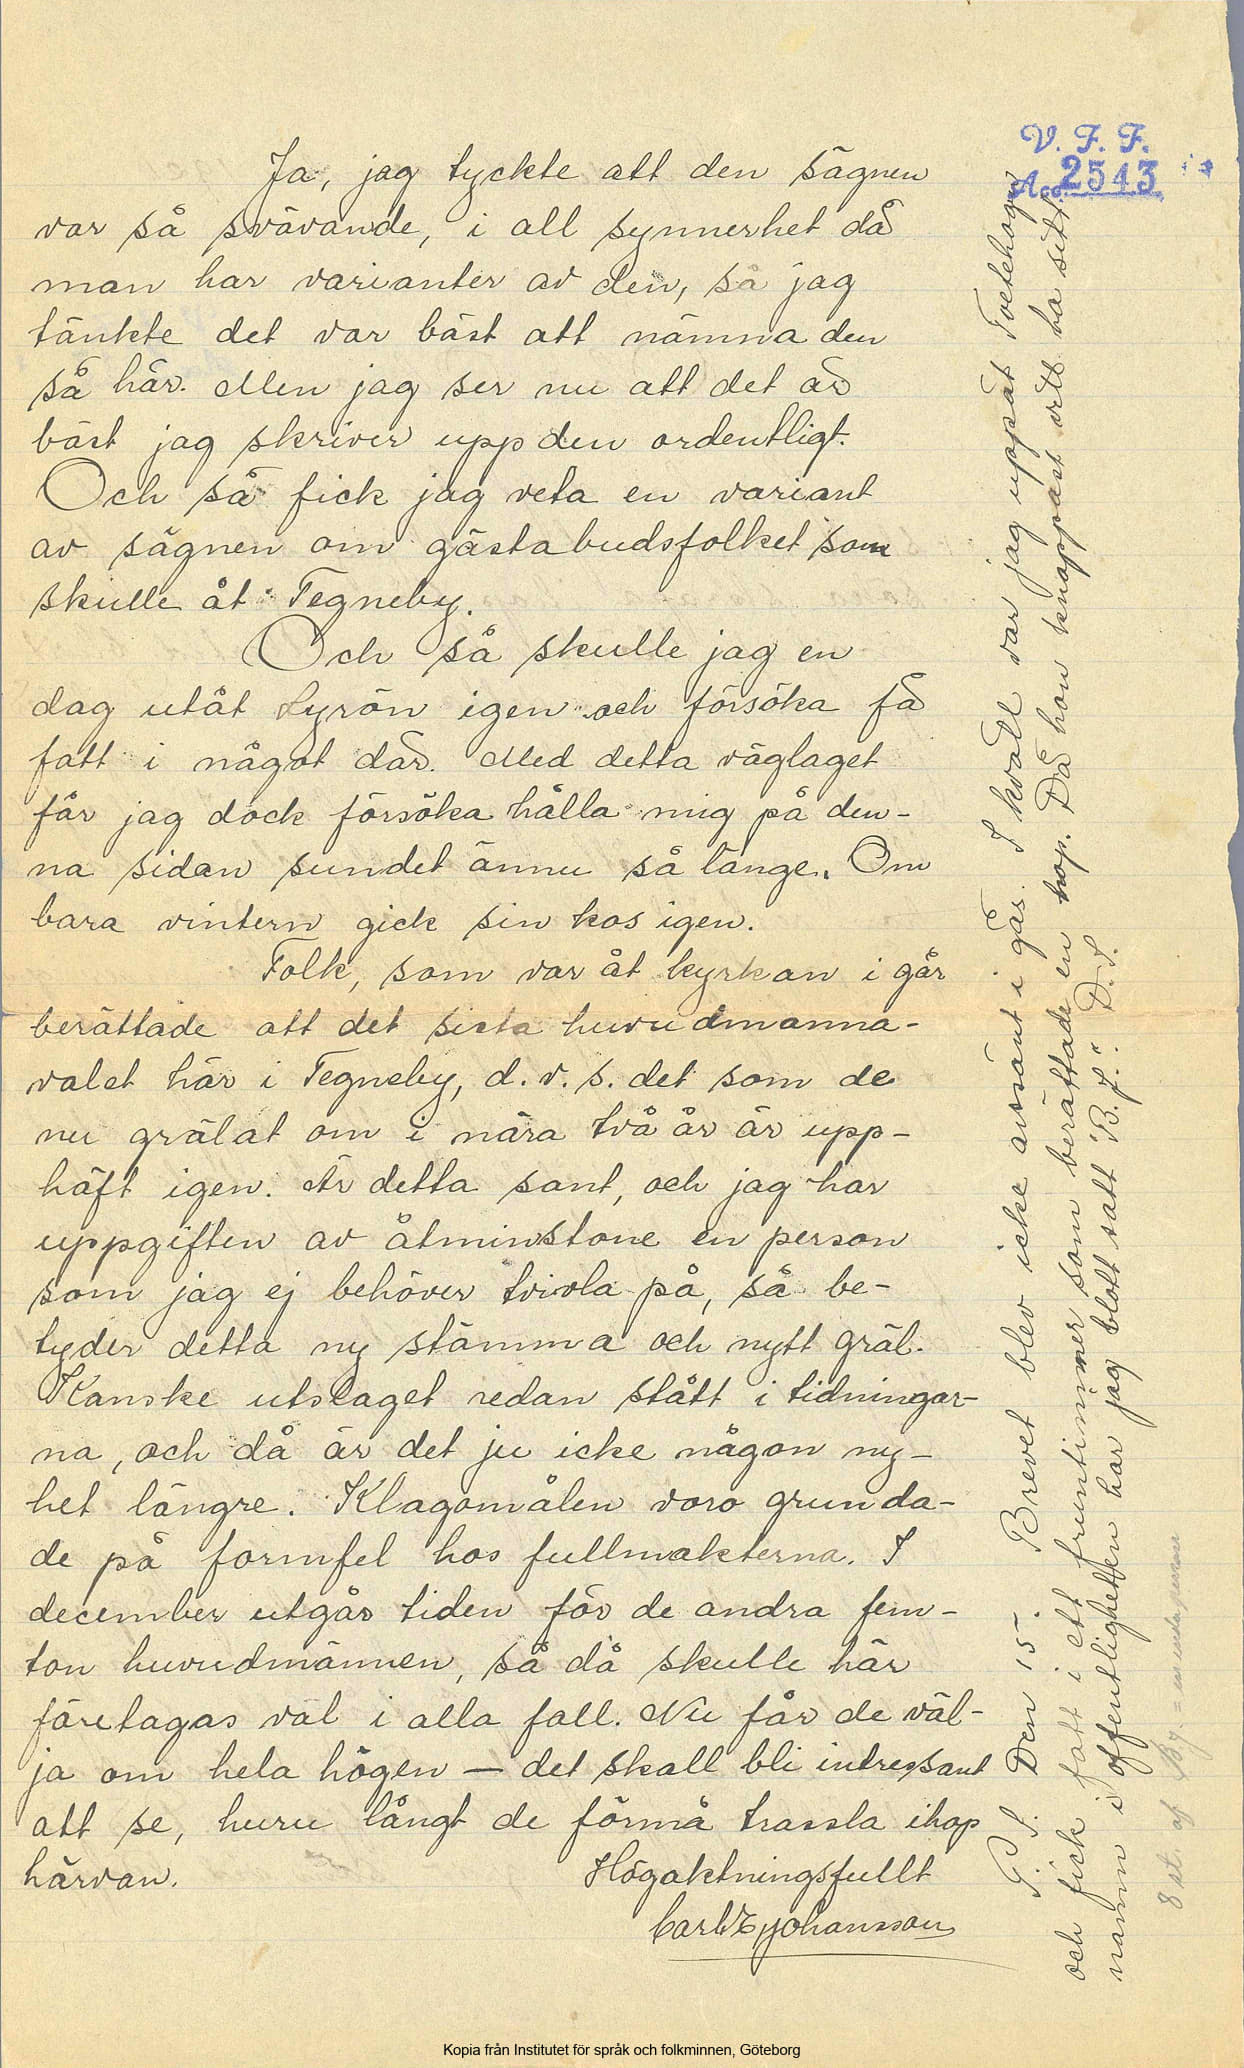 V. F. F.
Acc. 2543
Ja, jag tyckte att den sägnen
var så svävande, i all synnerhet då
man har varianter av den, så jag
tänkte det var bäst att nämna den
så här. Men jag ser nu att det är
bäst jag skriver upp den ordentligt.
Och så fick jag veta en variant
av sägnen om gästabudsfolket som
skulle åt Tegneby.
Och så skulle jag en
dag utåt Lyrön igen och försöka få
fatt i något där. Med detta väglaget
får jag dock försöka hålla mig på den-
na sidan sundet ännu så länge. Om
bara vintern gick sin kos igen.
Folk, som var åt kyrkan i går
berättade att det sista huvudmanna-
valet här i Tegneby, d. v. s. det som de
nu grälat om i nära två år är upp-
häft igen. Är detta sant, och jag har
uppgiften av åtminstone en person
som jag ej behöver tvivla på, så be-
tyder detta ny stämma och nytt gräl.
Kanske utslaget redan stått i tidningar-
na, och då är det ju icke någon ny-
het längre. Klagomålen voro grunda-
de på formfel hos fullmakterna. I
december utgår tiden för de andra fem-
ton huvudmännen, så då skulle här
företagas val i alla fall. Nu får de väl-
ja om hela högen — det skall bli intressant
att se, huru långt de förmå trassla ihop
härvan.
Högaktningsfullt
Carl E Johansson
P. S. Den 15. Brevet blev icke avsänt i går. I kväll var jag uppåt Tvetehöga
och fick fatt i ett fruntimmer som berättade en hop. Då hon knappast vill ha sitt
namn i offentligheten har jag blott satt "B. J.". D. S.
8 st. af B J. = en enda
Kopia från Institutet för språk och folkminnen, Göteborg